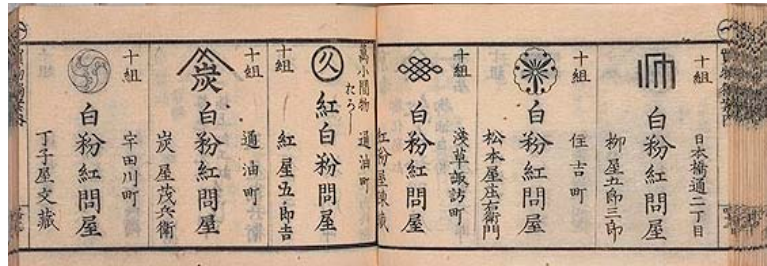 十組
日本橋通二丁目
白粉紅問屋
柳屋五郎三郎
十組
住吉町
白粉紅問屋
松本屋庄右衛門
十組
淺草諏訪町
白粉紅問屋
紅粉屋
萬小間物
たろし
通油町
久
紅白粉問屋
十組
紅屋五郎吉
十組
通油町
炭
白粉紅問屋
炭屋茂兵衛
十組
宇田川町
白粉紅問屋
丁子屋文藏